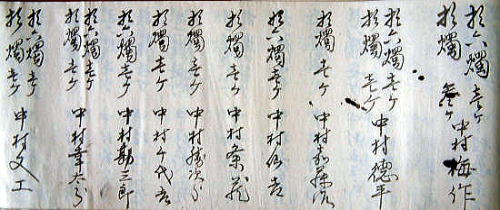 拾六燭 壱ケ
拾燭 壱ケ 中村梅作
拾六燭 壱ケ
拾燭 壱ケ 中村徳平
拾燭 壱ケ 中村
拾六燭 壱ケ 中村
拾燭 壱ケ 中村粂蔵
拾燭 壱ケ 中村勝次郎
拾燭 壱ケ 中村千代吉
拾六燭 壱ケ 中村勘三郎
拾六燭 壱ケ
拾燭 壱ケ 中村幸太郎
拾六燭 壱ケ
拾燭 壱ケ 中村文